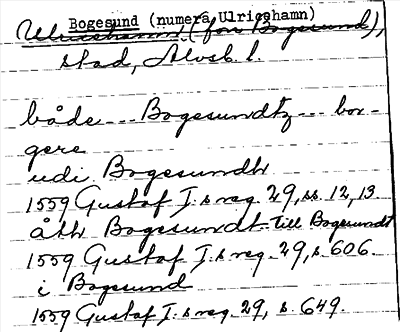 Bogesund (numera Ulricehamn)
Ulricehamn (förr Bogesund),
stad, Älvsb. l.
både --- Bogesundtz --- bor-
gere
udi Bogesundh
1559 Gustaf I:s reg. 29, ss. 12, 13.
åth Bogesundt till Bogesundt
1559 Gustaf I:s reg. 29, s. 606.
i Bogesund
1559 Gustaf I:s reg. 29, s. 649.